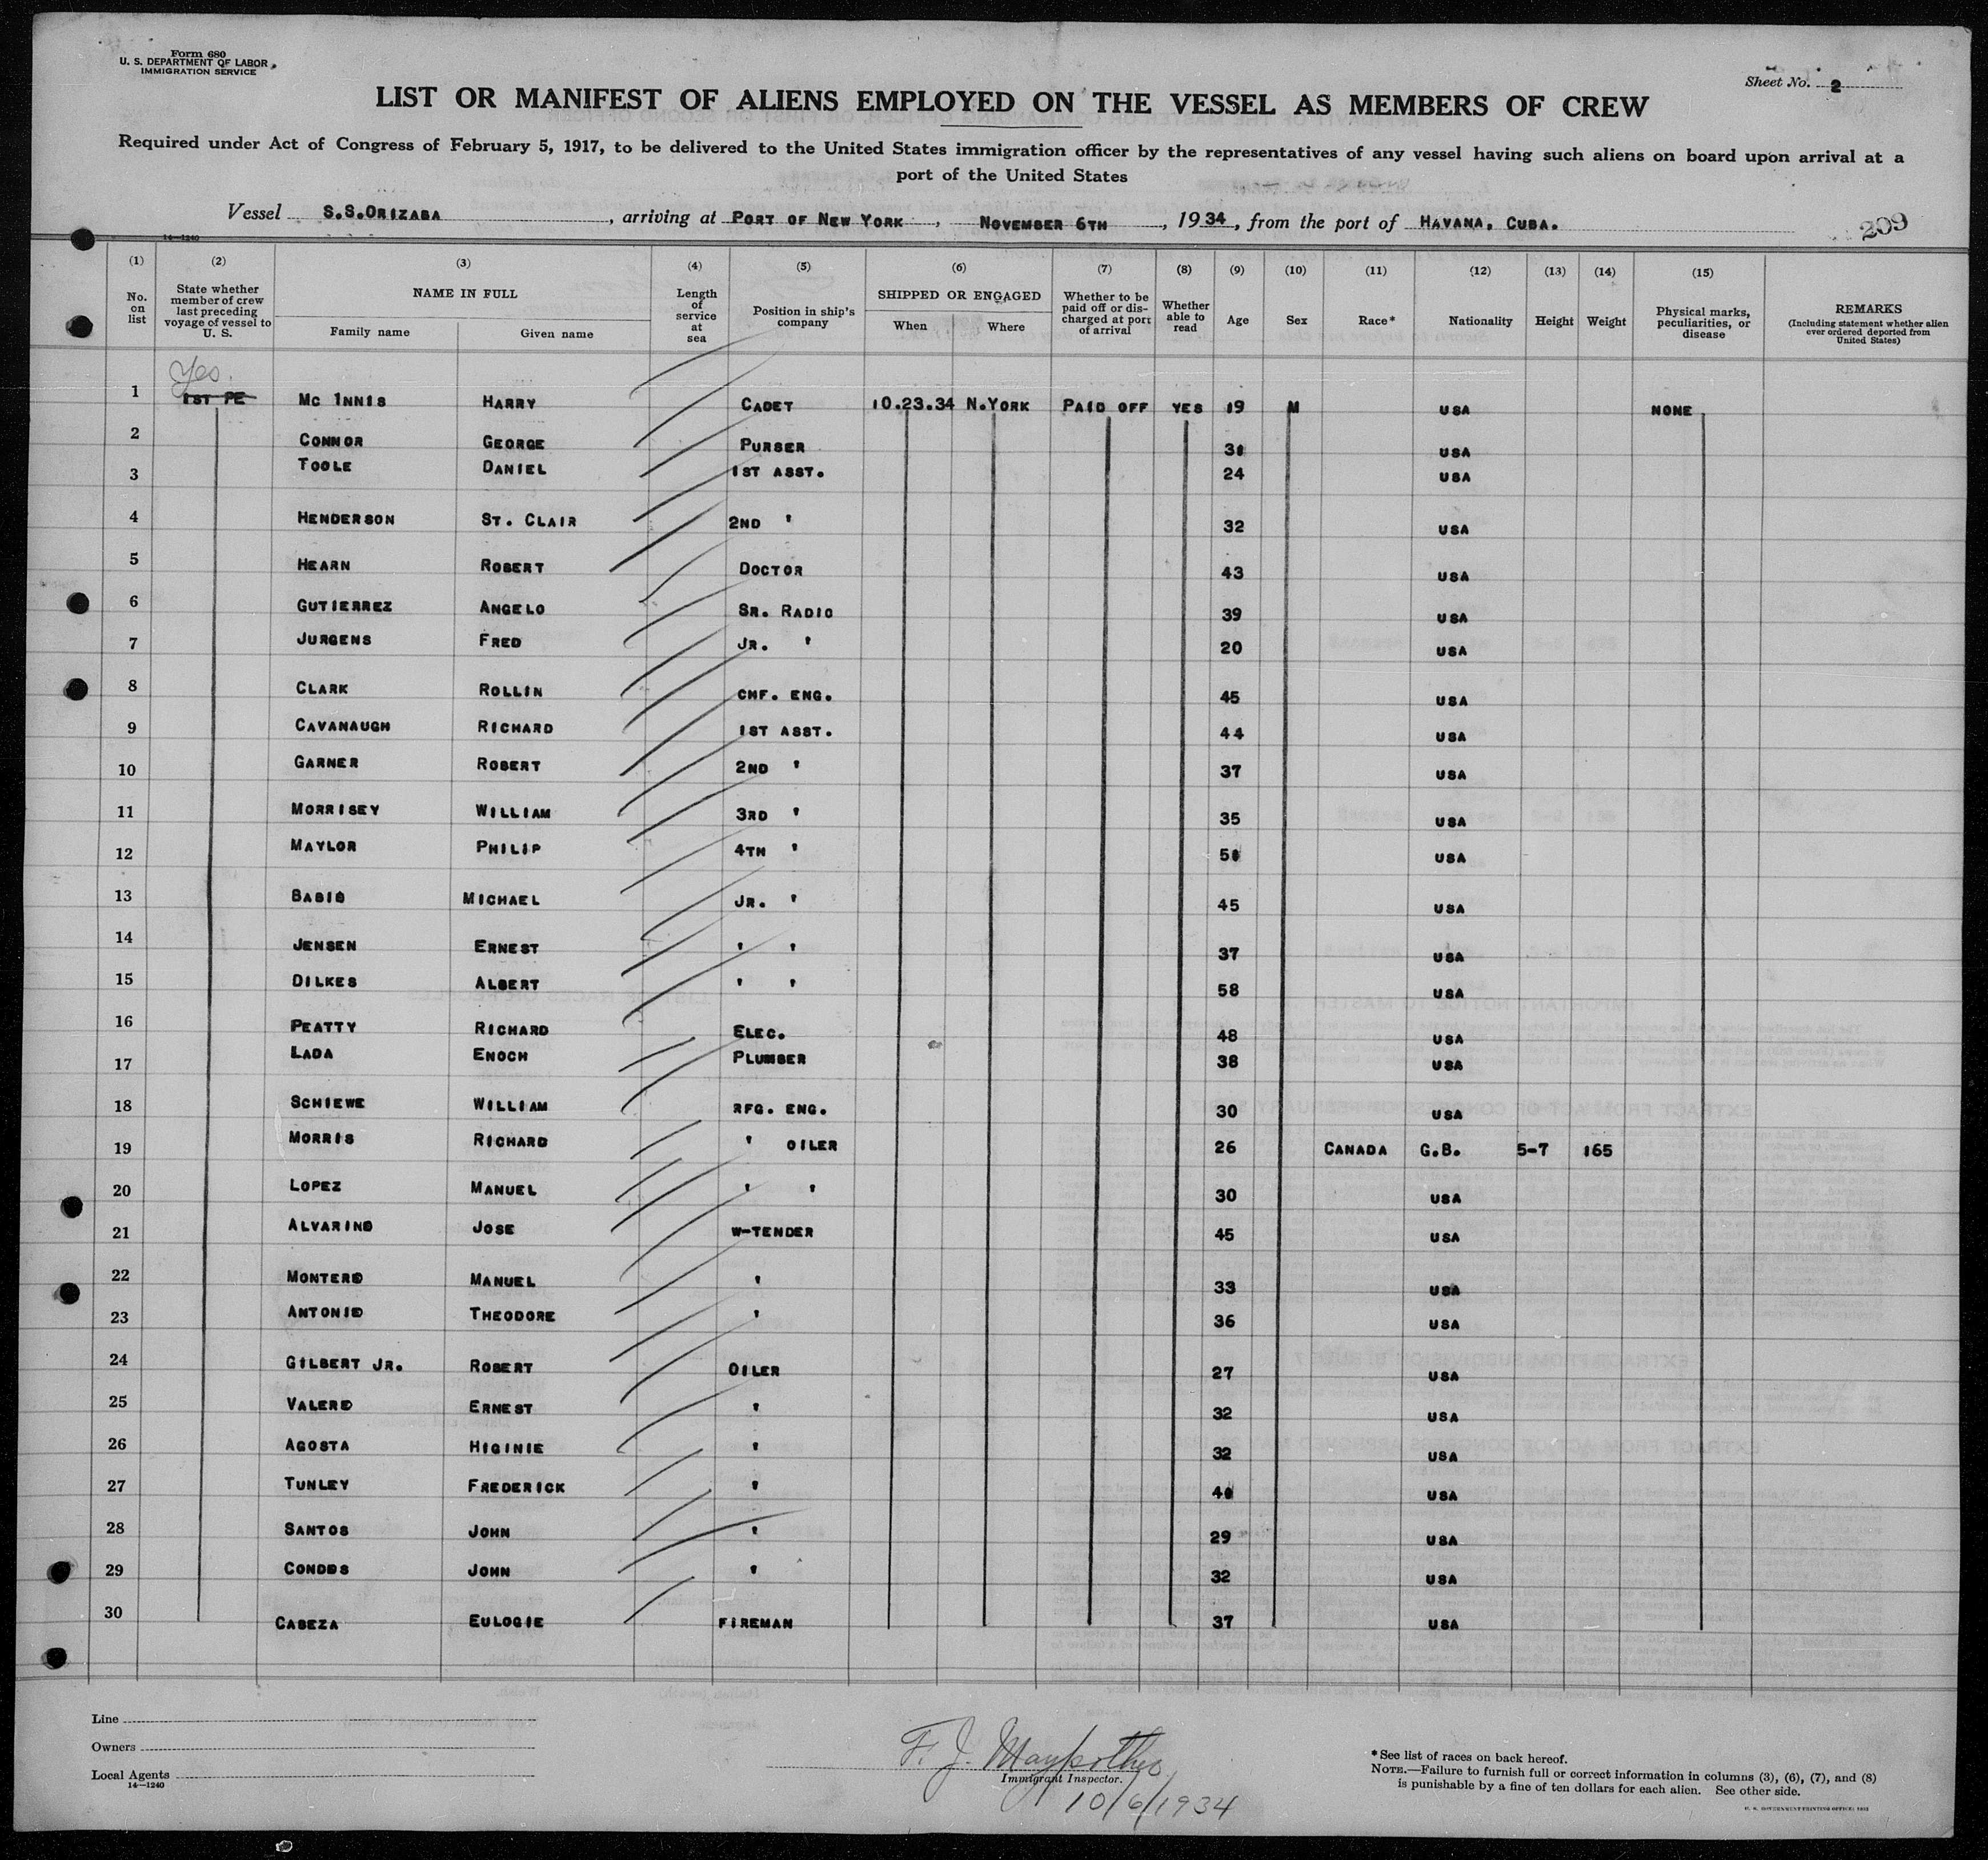 Form 680
U. S. DEPARTMENT OF LABOR
IMMIGRATION SERVICE
Sheet No. 2
LIST OR MANIFEST OF ALIENS EMPLOYED ON THE VESSEL AS MEMBERS OF CREW
Required under Act of Congress of February 5, 1917, to be delivered to the United States immigration officer by the representatives of any vessel having such aliens on board upon arrival at a
port of the United States
Vessel S.S.ORIZABA, arriving at PORT OF NEW YORK, NOVEMBER 6TH, 1934, from the port of HAVANA, CUBA.
209
14—1240
(1) (2) (3) (4) (5) (6) (7) (8) (9) (10) (11) (12) (13) (14) (15)
No. on list
State whether member of crew last preceding voyage of vessel to U. S.
NAME IN FULL
Family name Given name
Length of service at sea
Position in ship's company
SHIPPED OR ENGAGED
When Where
Whether to be paid off or discharged at port of arrival
Whether able to read
Age Sex Race* Nationality Height Weight
Physical marks, peculiarities, or disease
REMARKS
(Including statement whether alien ever ordered deported from United States)
Yes.
1 1ST PE MC INNIS HARRY CADET 10.23.34 N.YORK PAID OFF YES 19 M USA NONE
2 CONNOR GEORGE PURSER USA
3 TOOLE DANIEL 1ST ASST. 24 USA
4 HENDERSON ST. CLAIR 2ND ' 32 USA
5 HEARN ROBERT DOCTOR 43 USA
6 GUTIERREZ ANGELO SR. RADIO 39 USA
7 JURGENS FRED JR. ' 20 USA
8 CLARK ROLLIN CHF. ENG. 45 USA
9 CAVANAUGH RICHARD 1ST ASST. 44 USA
10 GARNER ROBERT 2ND ' 37 USA
11 MORRISEY WILLIAM 3RD ' 35 USA
12 MAYLOR PHILIP 4TH ' USA
13 MICHAEL JR. ' 45 USA
14 JENSEN ERNEST ' ' 37 USA
15 DILKES ALBERT ' ' 58 USA
16 PEATTY RICHARD ELEC. 48 USA
17 LADA ENOCH PLUMBER 38 USA
18 SCHIEWE WILLIAM RFG. ENG. 30 USA
19 MORRIS RICHARD ' OILER 26 CANADA G.B. 5-7 165
20 LOPEZ MANUEL ' ' 30 USA
21 ALVARINO JOSE W-TENDER 45 USA
22 MONTERO MANUEL ' 33 USA
23 ANTONIO THEODORE ' 36 USA
24 GILBERT JR. ROBERT OILER 27 USA
25 VALERO ERNEST ' 32 USA
26 AGOSTA HIGINIE ' 32 USA
27 TUNLEY FREDERICK ' USA
28 SANTOS JOHN ' 29 USA
29 CONDOS JOHN ' 32 USA
30 CABEZA EULOGIE FIREMAN 37 USA
Line
Owners
Local Agents
14—1240
F. J.
Immigrant Inspector.
10/6/1934
*See list of races on back hereof.
NOTE.—Failure to furnish full or correct information in columns (3), (6), (7), and (8)
is punishable by a fine of ten dollars for each alien. See other side.